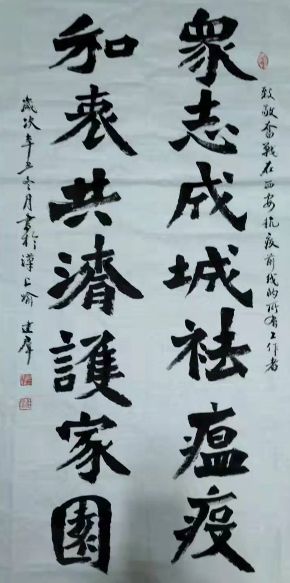 致敬奋战在西安抗疫前线的所有工作者
眾志成城祛瘟疫
和衷共濟護家園
歲次辛丑冬月書於漢上喻建群